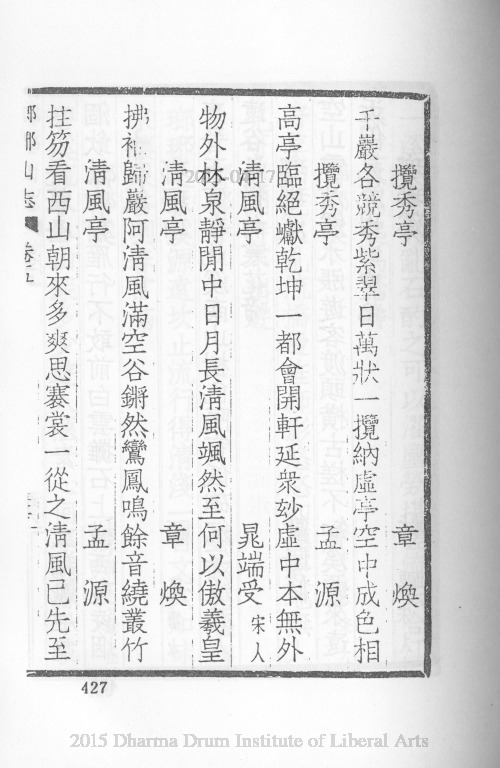 攬秀亭 章煥
千巖各競秀紫翠日萬狀一攬納虛亭空中成色相
攬秀亭 孟源
高亭臨絕巘乾坤一都會開軒延衆妙虛中本無外
清風亭 晁端受 宋人
物外林泉靜閒中日月長清風颯然至何以傲羲皇
清風亭 章煥
拂袖歸巖阿清風滿空谷鏘然鸞鳳鳴餘音繞叢竹
清風亭 孟源
拄笏看西山朝來多爽思褰裳一從之清風已先至
瑯琊山志 卷五
427
2015 Dharma Drum Institute of Liberal Arts